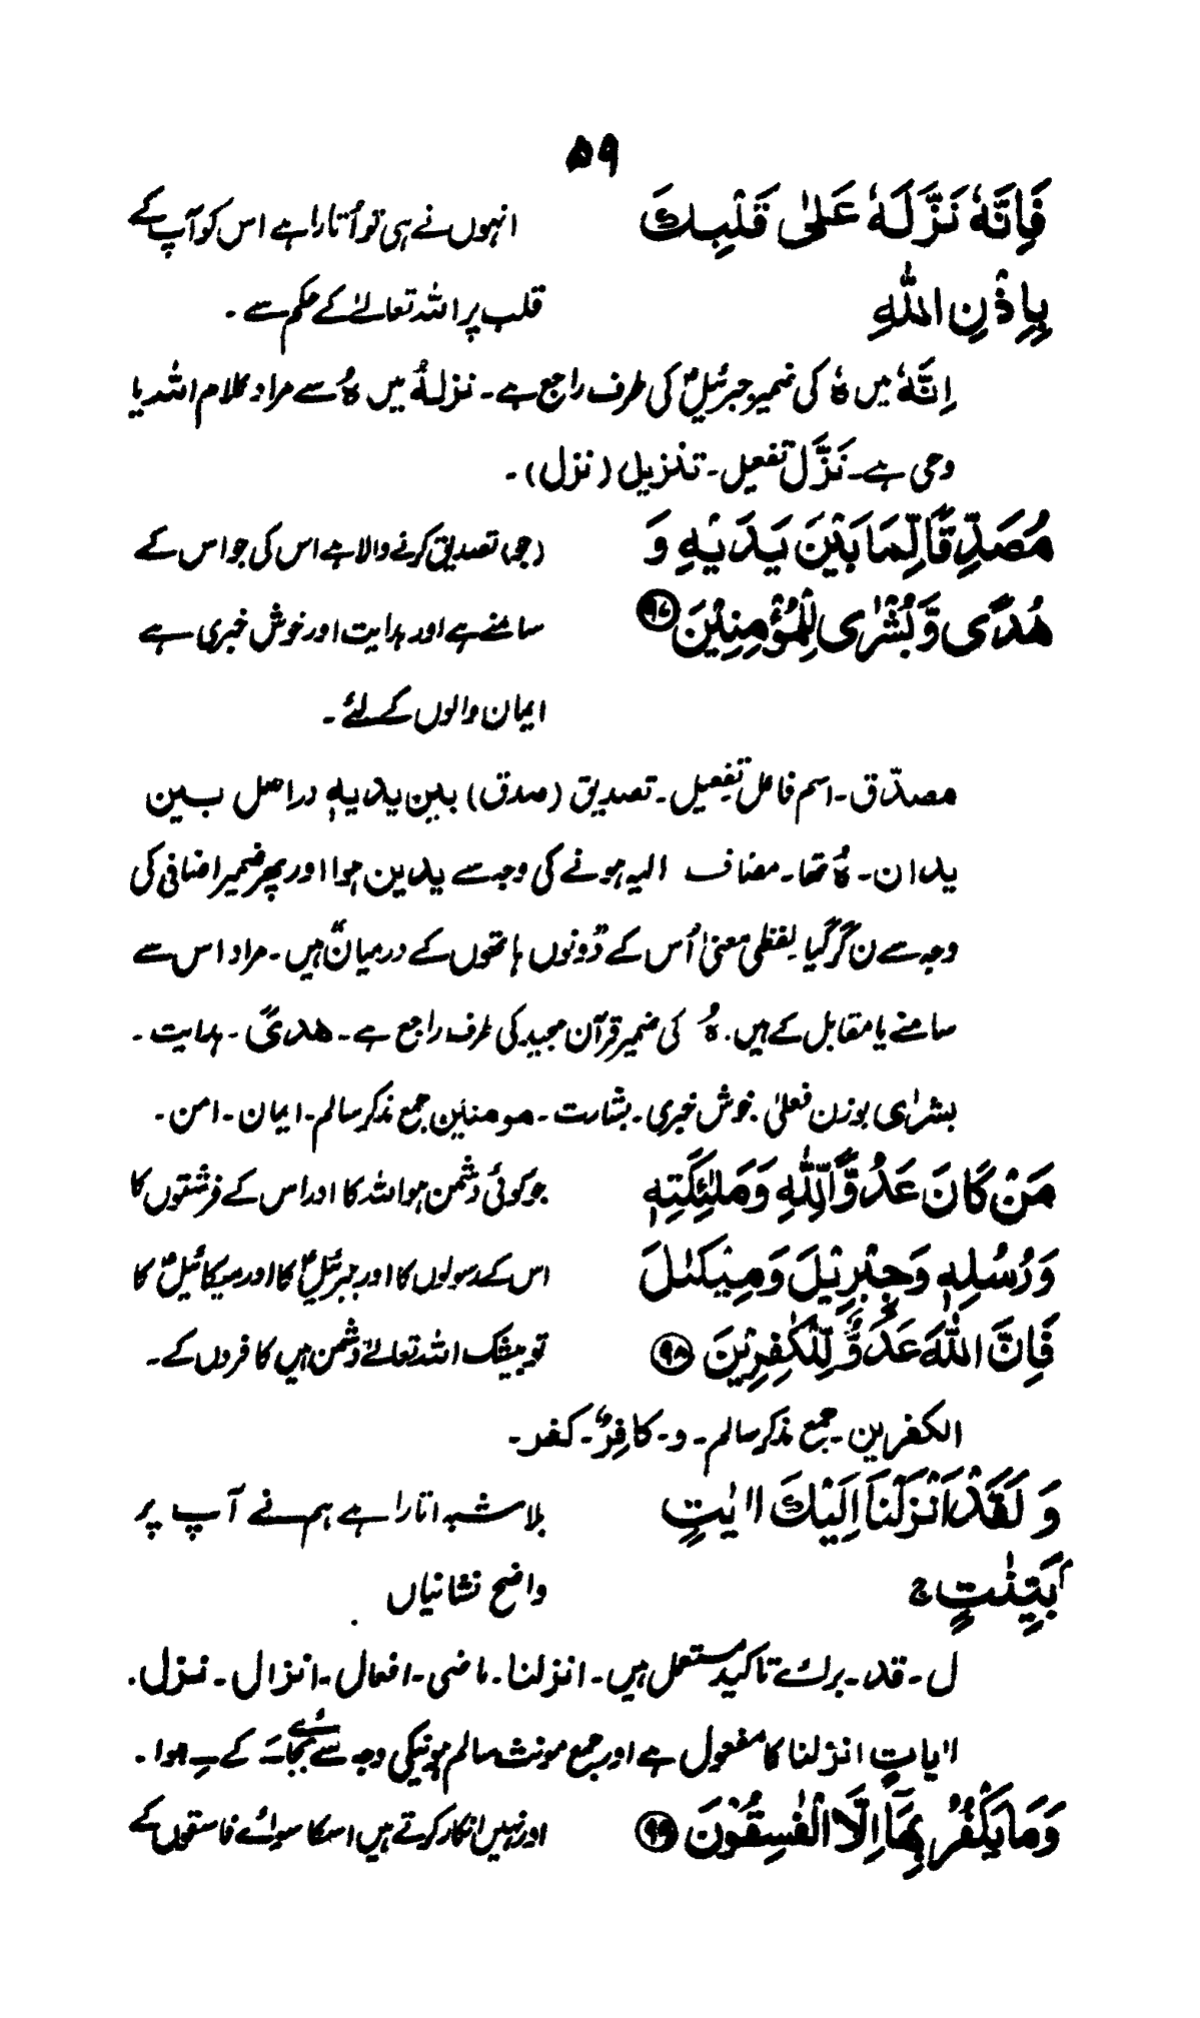 ۵۹
فَاِنَّهٗ نَزَّلَهٗ عَلٰی قَلْبِكَ انہوں نے ہی تو اُتارا ہے اس کو آپ کے
بِاِذْنِ اللّٰهِ قلب پر اللہ تعالےٰ کے حکم سے ۔
اِنَّهٗ میں هٗ کی ضمیر جبرئیلؑ کی طرف راجع ہے۔ نزلهٗ میں هٗ سے مراد کلام اللہ یا
وحی ہے۔ نَزَّل تفعیل۔ تنزیل (نزل)۔
مُصَدِّقًا لِّمَا بَیْنَ یَدَیْهِ وَ (جو) تصدیق کرنے والا ہے اس کی جو اس کے
هُدًی وَّبُشْرٰی لِلْمُؤْمِنِیْنَ ۹۷ سامنے ہے اور ہدایت اور خوش خبری ہے
ایمان والوں کے لئے ۔
مصدّق۔ اسم فاعل تفعیل۔ تصدیق (صدق) بین یدیهٖ دراصل بین
یدان۔ هٗ تھا۔ مضاف الیہ ہونے کی وجہ سے یدین ہوا اور پھر ضمیر اضافی کی
وجہ سے ن گر گیا لفظی معنیٰ اُس کے دونوں ہاتھوں کے درمیان ہیں۔ مراد اس سے
سامنے یا مقابل کے ہیں۔ هٗ کی ضمیر قرآن مجید کی طرف راجع ہے۔ هدیً ۔ ہدایت ۔
بشرٰی بوزن فعلیٰ خوش خبری۔ بشارت۔ مومنین جمع مذکر سالم۔ ایمان۔ امن۔
مَنْ كَانَ عَدُوًّا لِّلّٰهِ وَمَلٰٓئِكَتِهٖ جو کوئی دشمن ہو اللہ کا اور اس کے فرشتوں کا
وَرُسُلِهٖ وَجِبْرِیْلَ وَمِیْكٰىلَ اس کے رسولوں کا اور جبرئیلؑ کا اور میکائیلؑ کا
فَاِنَّ اللّٰهَ عَدُوٌّ لِّلْكٰفِرِیْنَ ۹۸ تو بیشک اللہ تعالےٰ دشمن ہیں کافروں کے۔
الکفرین۔ جمع مذکر سالم۔ و۔ کافِرٌ۔ کفر۔
وَ لَقَدْ اَنْزَلْنَا اِلَیْكَ اٰیٰتٍ بلا شبہ اتارا ہے ہم نے آپ پر
بَیِّنٰتٍ ج واضح نشانیاں
ل۔ قد۔ برائے تاکید مستعمل ہیں۔ انزلنا۔ ماضی۔ افعال۔ انزال۔ نزل۔
اٰیاتٍ انزلنا کا مفعول ہے اور جمع مونث سالم ہونیکی وجہ سے بجائے کے ہوا۔
وَمَا یَكْفُرُ بِهَآ اِلَّا الْفٰسِقُوْنَ ۹۹ اور نہیں انکار کرتے ہیں اسکا سوائے فاسقوں کے